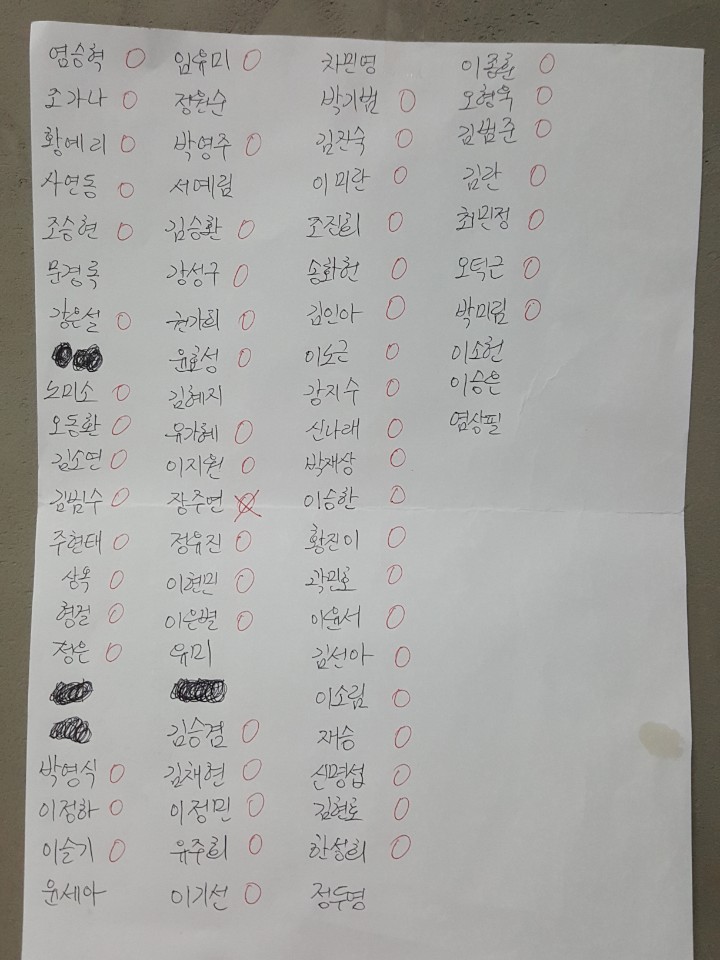 염승혁 O
조가나 O
황예리 O
사연동 O
조승현 O
문경록
강은설 O
노미소 O
오동환 O
김소연 O
김범수 O
주현태 O
상옥 O
형걸 O
정은 O
박영식 O
이정하 O
이슬기 O
윤세아
임유미 O
정원순
박영주 O
서예림
김승환 O
강성구 O
권가희 O
윤효성 O
김혜지
유가혜 O
이지원 O
장주연
정유진 O
이현민 O
이은별 O
유미
김승겸 O
김채현 O
이정민 O
유주희 O
이기선 O
차민영
박기범 O
김진숙 O
이미란 O
조진희 O
송화헌 O
김인아 O
이노근 O
강지수 O
신나래 O
박재상 O
이승환 O
황진이 O
곽민호 O
이윤서 O
김선아 O
이소림 O
재승 O
신명섭 O
김현호 O
한설희 O
정두영
이종훈 O
오형욱 O
김범준 O
김란 O
최민정 O
오덕근 O
박미림 O
이소헌
이승은
염상필